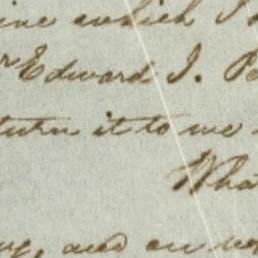 which I
Edward J. Pe
turn it to me
Wha
and on